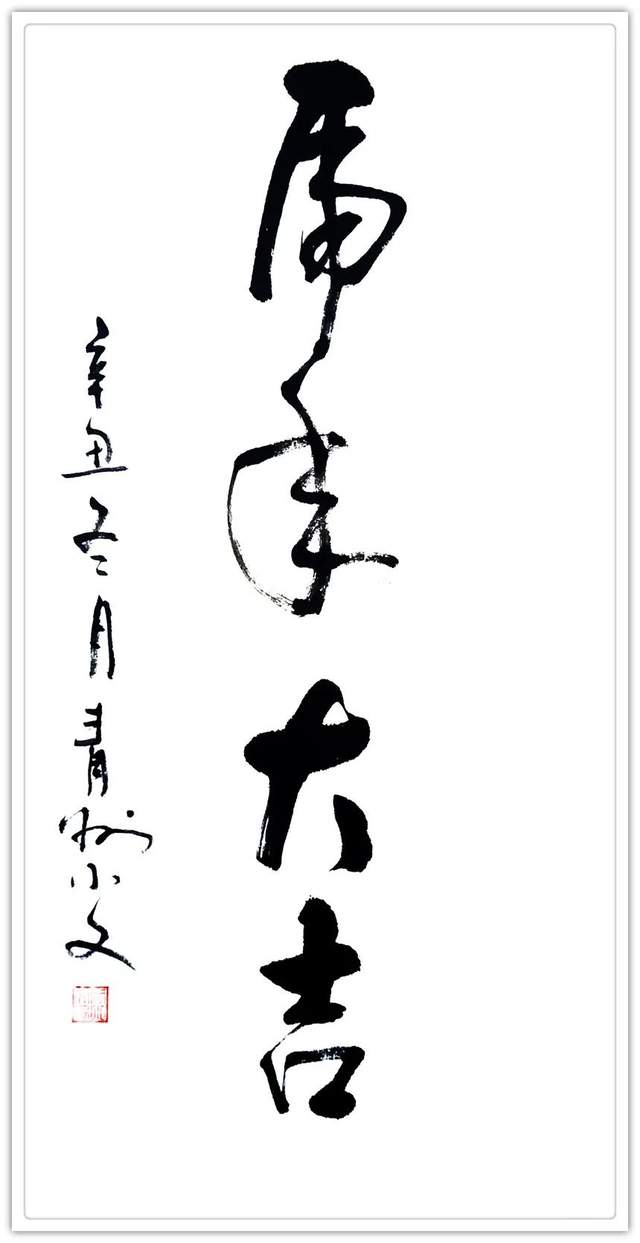 虎年大吉
辛丑冬月青州小文